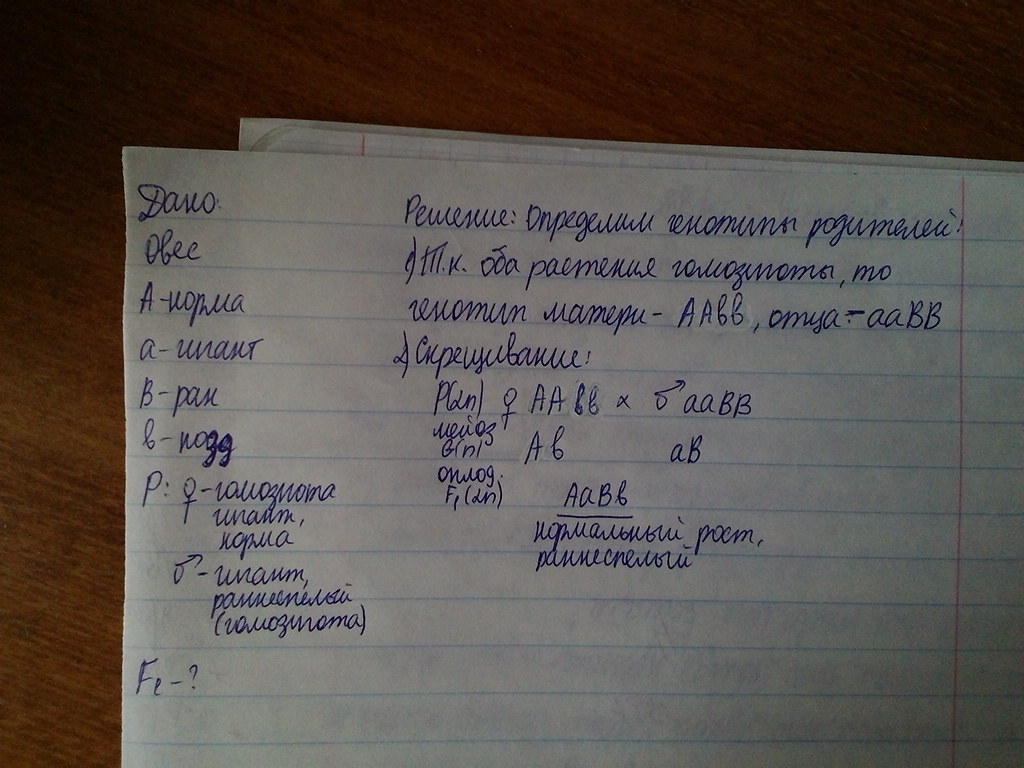 Дано:
Овес
А-норма
а-гигант
В-ран
в-позд
Р: ♀-гомозигота
гигант,
норма
♂-гигант,
раннеспелый
(гомозигота)
F₂-?
Решение: Определим генотипы родителей:
1) Т.к. оба растения гомозиготы, то
генотип матери - ААвв, отца - ааВВ
2) Скрещивание:
Р(2n) ♀ ААвв × ♂ ааВВ
мейоз
G(n) Ав аВ
оплод.
F₁(2n) АаВв
нормальный рост,
раннеспелый